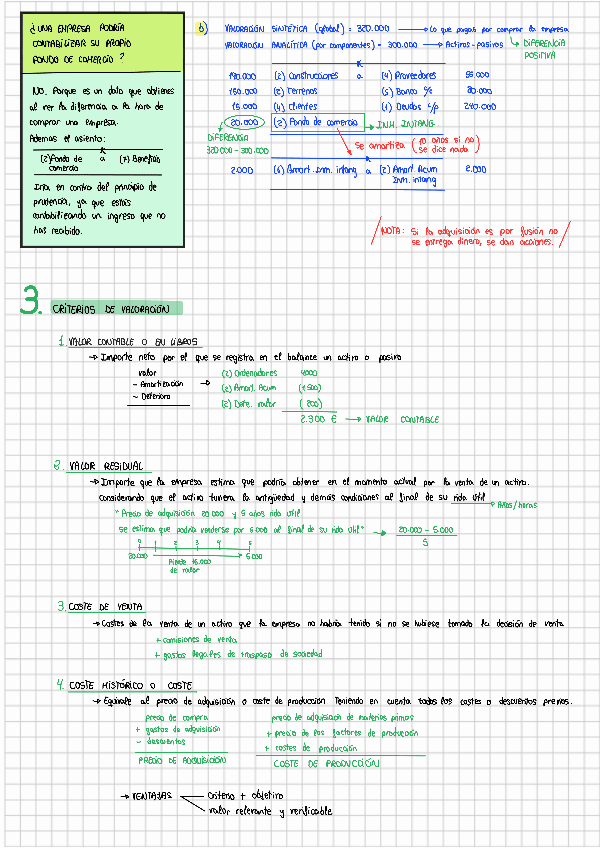 ¿UNA EMPRESA PODRÍA
CONTABILIZAR SU PROPIO
FONDO DE COMERCIO?
NO. Porque es un dato que obtienes
al ver la diferencia a la hora de
comprar una empresa.
Además el asiento:
(2) Fondo de comercio a (7) Beneficio
Iría en contra del principio de
prudencia, ya que estás
contabilizando un ingreso que no
has recibido.
b) VALORACIÓN SINTÉTICA (global) = 320.000 → Lo que pagas por comprar la empresa
VALORACIÓN ANALÍTICA (por componentes) = 300.000 → Activos - pasivos
DIFERENCIA POSITIVA
(2) Construcciones a (4) Proveedores
(2) Terrenos (5) Banco 80.000
15.000 (4) Clientes (1) Deudas c/p 240.000
20.000 (2) Fondo de comercio → INM. INTANG.
DIFERENCIA
320.000 - 300.000
Se amortiza (10 años si no se dice nada)
2.000 (6) Amort. inm. intang a (2) Amort. Acum Inm. intang 2.000
NOTA: Si la adquisición es por fusión no
se entrega dinero, se dan acciones.
3. CRITERIOS DE VALORACIÓN
1. VALOR CONTABLE O EN LIBROS
→ Importe neto por el que se registra en el balance un activo o pasivo
valor → (2) Ordenadores 4000
- Amortización (2) Amort. Acum (1500)
- Deterioro (2) Dete. valor (200)
2.300 € → VALOR CONTABLE
2. VALOR RESIDUAL
→ Importe que la empresa estima que podría obtener en el momento actual por la venta de un activo.
Considerando que el activo tuviera la antigüedad y demás condiciones al final de su vida útil
Años/horas
"Precio de adquisición 20.000 y 5 años vida útil
Se estima que podría venderse por 5.000 al final de su vida útil" → 20.000 - 5.000
5
0 1 2 3 4 5
20.000 5.000
Pierde 15.000
de valor
3. COSTE DE VENTA
→ Costes de la venta de un activo que la empresa no habría tenido si no se hubiese tomado la decisión de venta
+ comisiones de venta
+ gastos legales de traspaso de sociedad
4. COSTE HISTÓRICO O COSTE
→ Equivale al precio de adquisición o coste de producción Teniendo en cuenta todos los costes o descuentos previos.
precio de compra precio de adquisición de materias primas
+ gastos de adquisición + precio de los factores de producción
- descuentos + costes de producción
PRECIO DE ADQUISICIÓN COSTE DE PRODUCCIÓN
→ VENTAJAS criterio + objetivo
valor relevante y verificable